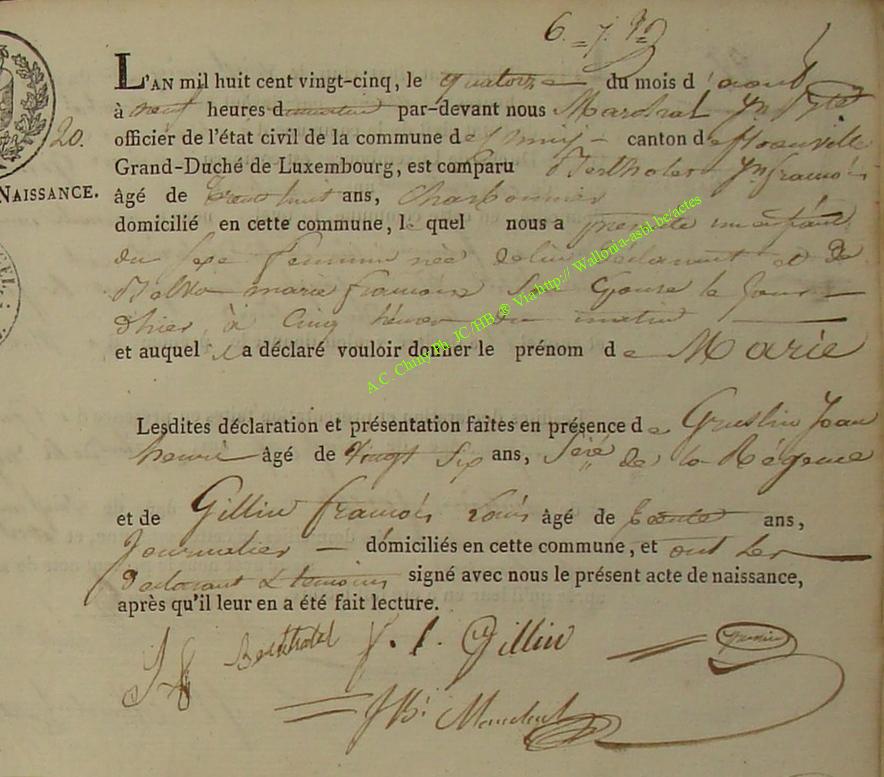 20.
NAISSANCE.
L'AN mil huit cent vingt-cinq, le quatorze du mois d'aout
à neuf heures d par-devant nous Maréchal
officier de l'état civil de la commune d canton d
Grand-Duché de Luxembourg, est comparu Bertholet Jn françois
âgé de trente huit ans, charbonnier
domicilié en cette commune, le quel nous a présenté un enfant
du sexe feminin née de lui déclarant et de
marie françoise Son Epouse le Jour
d'hier, à Cinq héures du matin
et auquel il a déclaré vouloir donner le prénom de Marie
Lesdites déclaration et présentation faites en présence de Gruslin Jean
henri âgé de vingt six ans, de la Régence
et de Gillin françois Louis âgé de trente ans,
Journalier domiciliés en cette commune, et ont les
declarant & temoins signé avec nous le présent acte de naissance,
après qu'il leur en a été fait lecture.
Bertholet f. l. Gillin
A.C. Chiny Ph. JC/HB ® Via http:// Wallonia-asbl.be/actes